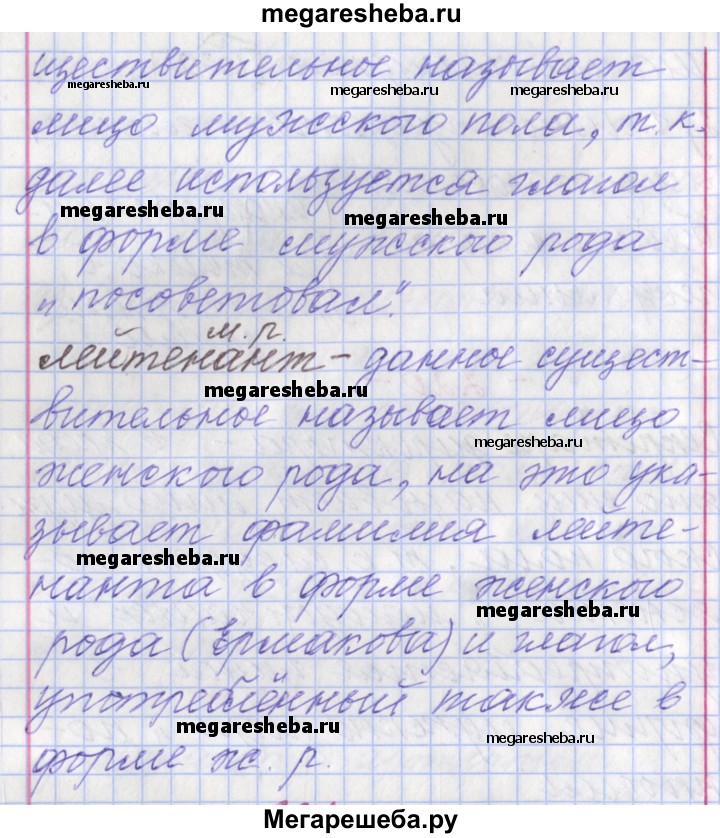 megaresheba.ru
ществительное называет
megaresheba.ru megaresheba.ru megaresheba.ru
лицо мужского пола, т. к.
далее используется глагол
megaresheba.ru megaresheba.ru
в форме мужского рода
„посоветовал“.
м. р.
лейтенант – данное сущест-
megaresheba.ru
вительное называет лицо
megaresheba.ru
женского рода, на это ука-
зывает фамилия лейте-
megaresheba.ru
нанта в форме женского
megaresheba.ru
рода (Ермакова) и глагол,
употреблённый также в
megaresheba.ru megaresheba.ru
форме ж. р.
Мегарешеба.ру